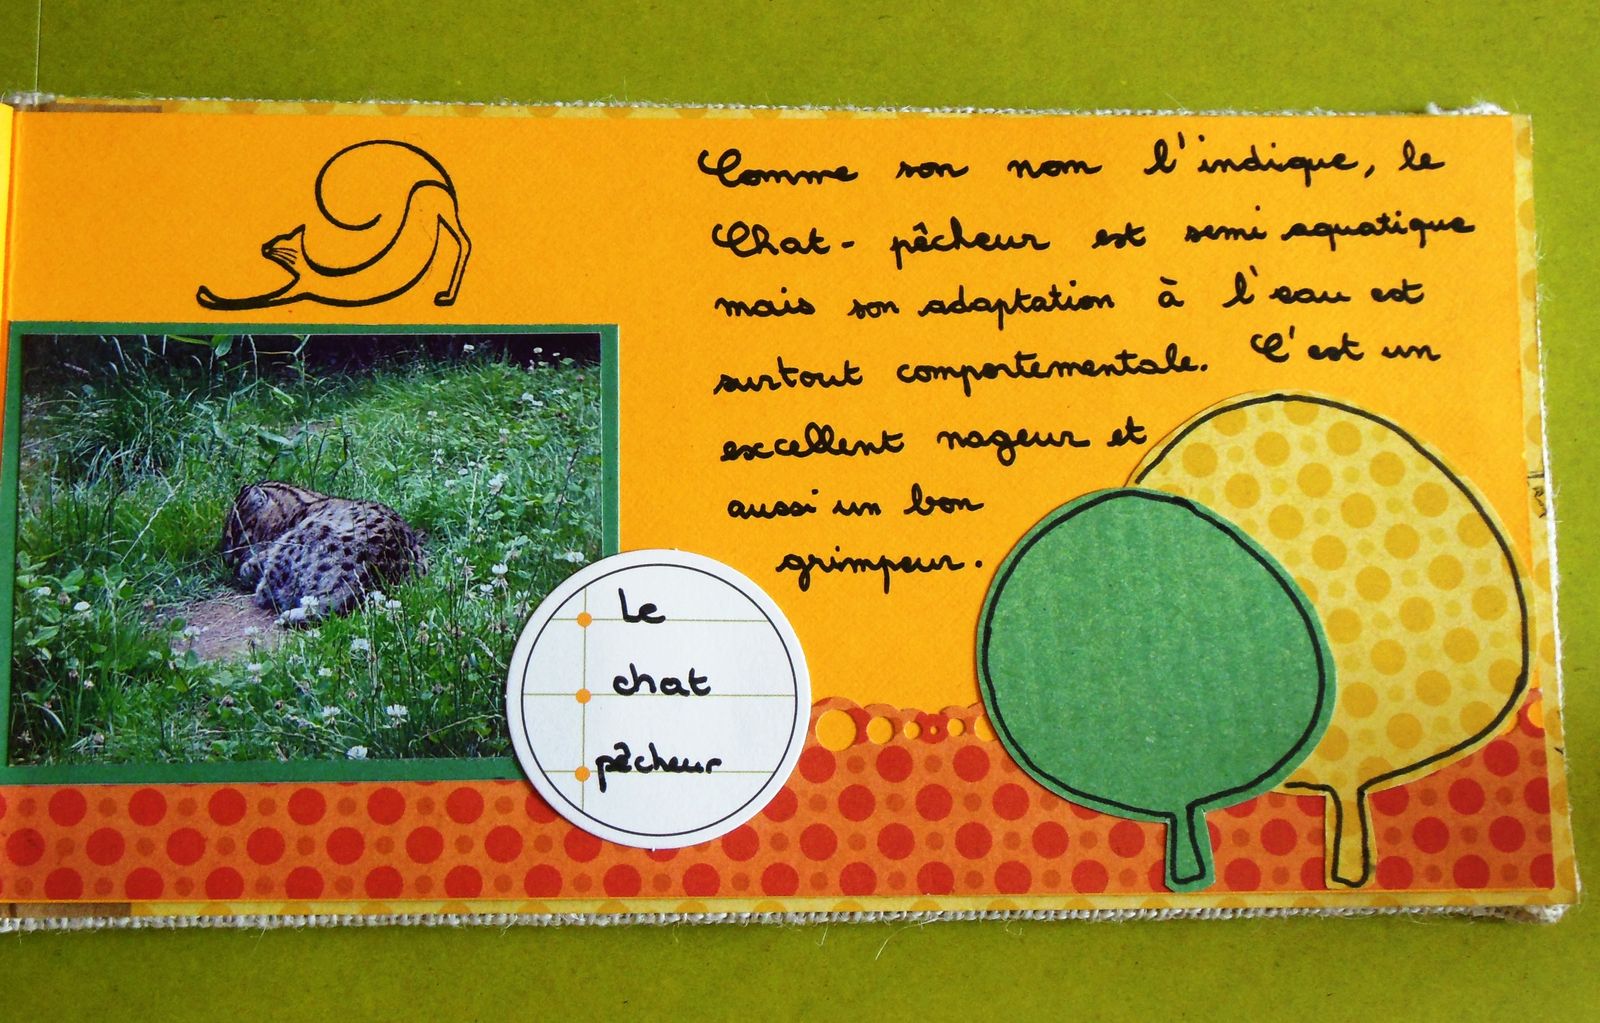 Comme son nom l'indique, le
Chat-pêcheur est semi aquatique
mais son adaptation à l'eau est
surtout comportementale. C'est un
excellent nageur et
aussi un bon
grimpeur.
Le
chat
pêcheur